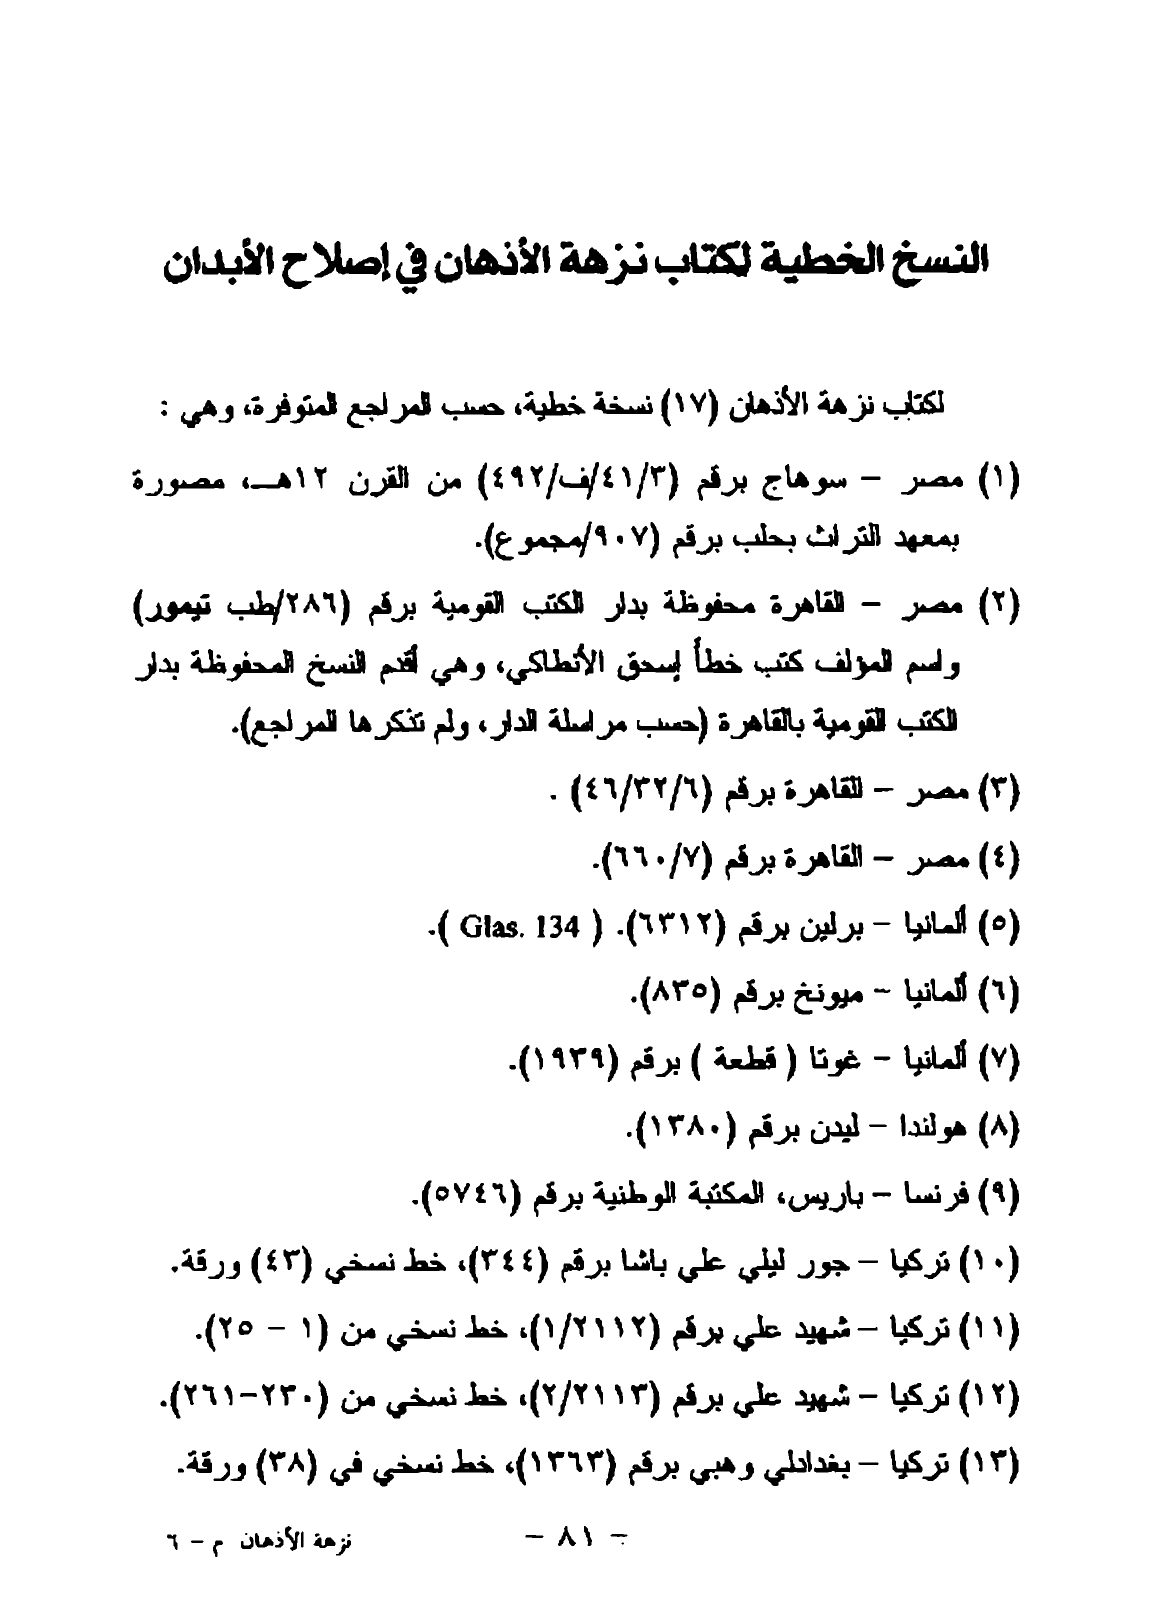 النسخ الخطية لكتاب نزهة الأذهان في إصلاح الأبدان
لكتاب نزهة الأذهان (١٧) نسخة خطية، حسب المراجع المتوفرة، وهي :
(١) مصر – سوهاج برقم (٤١/٣/ف/٤٩٢) من القرن ١٢هـ، مصورة
بمعهد التراث بحلب برقم (٩٠٧/مجموع).
(٢) مصر – القاهرة محفوظة بدار الكتب القومية برقم (٢٨٦/طب تيمور)
واسم المؤلف كتب خطأ إسحق الأنطاكي، وهي أقدم النسخ المحفوظة بدار
الكتب القومية بالقاهرة (حسب مراسلة الدار، ولم تذكرها المراجع).
(٣) مصر – القاهرة برقم (٤٦/٣٢/٦) .
(٤) مصر – القاهرة برقم (٦٦٠/٧).
(٥) ألمانيا – برلين برقم (٦٣١٢). ( Glas. 134 ).
(٦) ألمانيا – ميونخ برقم (٨٣٥).
(٧) ألمانيا – غوتا ( قطعة ) برقم (١٩٣٩).
(٨) هولندا – ليدن برقم (١٣٨٠).
(٩) فرنسا – باريس، المكتبة الوطنية برقم (٥٧٤٦).
(١٠) تركيا – جور ليلي علي باشا برقم (٣٤٤)، خط نسخي (٤٣) ورقة.
(١١) تركيا – شهيد علي برقم (١/٢١١٢)، خط نسخي من (١ – ٢٥).
(١٢) تركيا – شهيد علي برقم (٢/٢١١٣)، خط نسخي من (٢٣٠–٢٦١).
(١٣) تركيا – بغدادلي وهبي برقم (١٣٦٣)، خط نسخي في (٣٨) ورقة.
– ٨١ –
نزهة الأذهان م – ٦